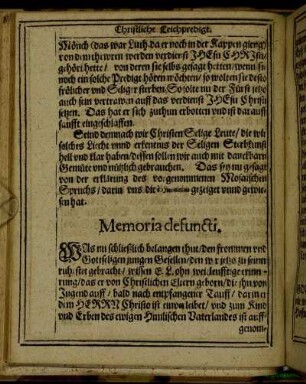 Christliche Leichpredigt.
Mönch (das war Luth. da er noch in der Kappen gieng)
von dem thewren werden verdienst JHEsu CHRJsti
gehöret hette / von deren sie selbs gesagt hetten / wenn sie
noch ein solche Predigt hören möchten / so wolten sie desto
frölicher und Seliger sterben, Solte nu der Fürst
auch sein vertrawen auff das verdienst JHEsu Christi
setzen. Das hat er sich zuthun erbotten und ist darauff
sanfft eingeschlaffen.
Seind demnach wir Christen Selige Leute / die wir
solches Liecht unnd erkentnus der Seligen Sterbkunst
hell und klar haben / dessen sollen wir auch mit danckbarn
Gemüte und nützlich gebrauchen. Das sey nu gesagt
von der erklärung des vorgenommenen Mosaischen
Spruchs / darin uns die gezeiget unnd gewie-
sen hat.
Memoria defuncti.
WAs nu schließlich belangen thut / den frommen und
Gottseligen jungen Gesellen / den wir jetzo zu seiner
ruhstet gebracht / wissen E. L. ohn weitleufftige erinne-
rung / das er von Christlichen Eltern geborn / die jhn von
Jugend auff / bald nach empfangener Tauff / darin er
dem HERRN Christo ist einverleibet / und zum Kind
und Erben des ewigen Himlischen Vaterlandes ist auff-
genom-